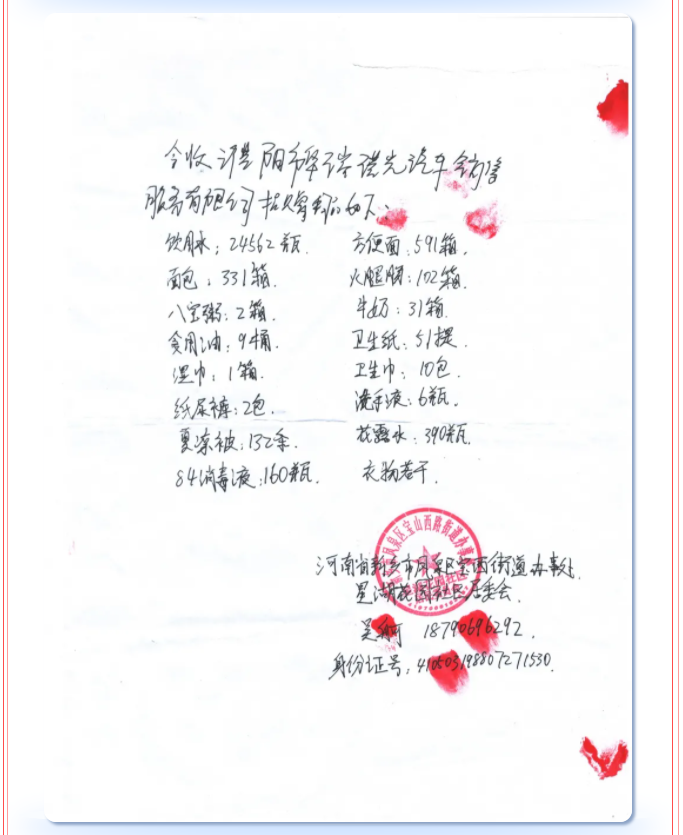 今收沭阳市 诺先汽车销售
服务有限公司捐赠物品如下:
饮用水: 24562瓶. 方便面: 591箱.
面包: 331箱. 火腿肠: 102箱.
八宝粥: 2箱. 牛奶: 31箱.
食用油: 9桶. 卫生纸: 51提.
湿巾: 1箱. 卫生巾: 10包.
纸尿裤: 2包. 洗手液: 6瓶.
夏凉被: 132条. 花露水: 390瓶.
84消毒液: 160瓶. 衣物若干.
凤泉区宝山西路街道办事处
河南省新乡市凤泉区宝西街道办事处
星湖花园社区居委会.
吴 18790696292.
身份证号: 410503198807271530.